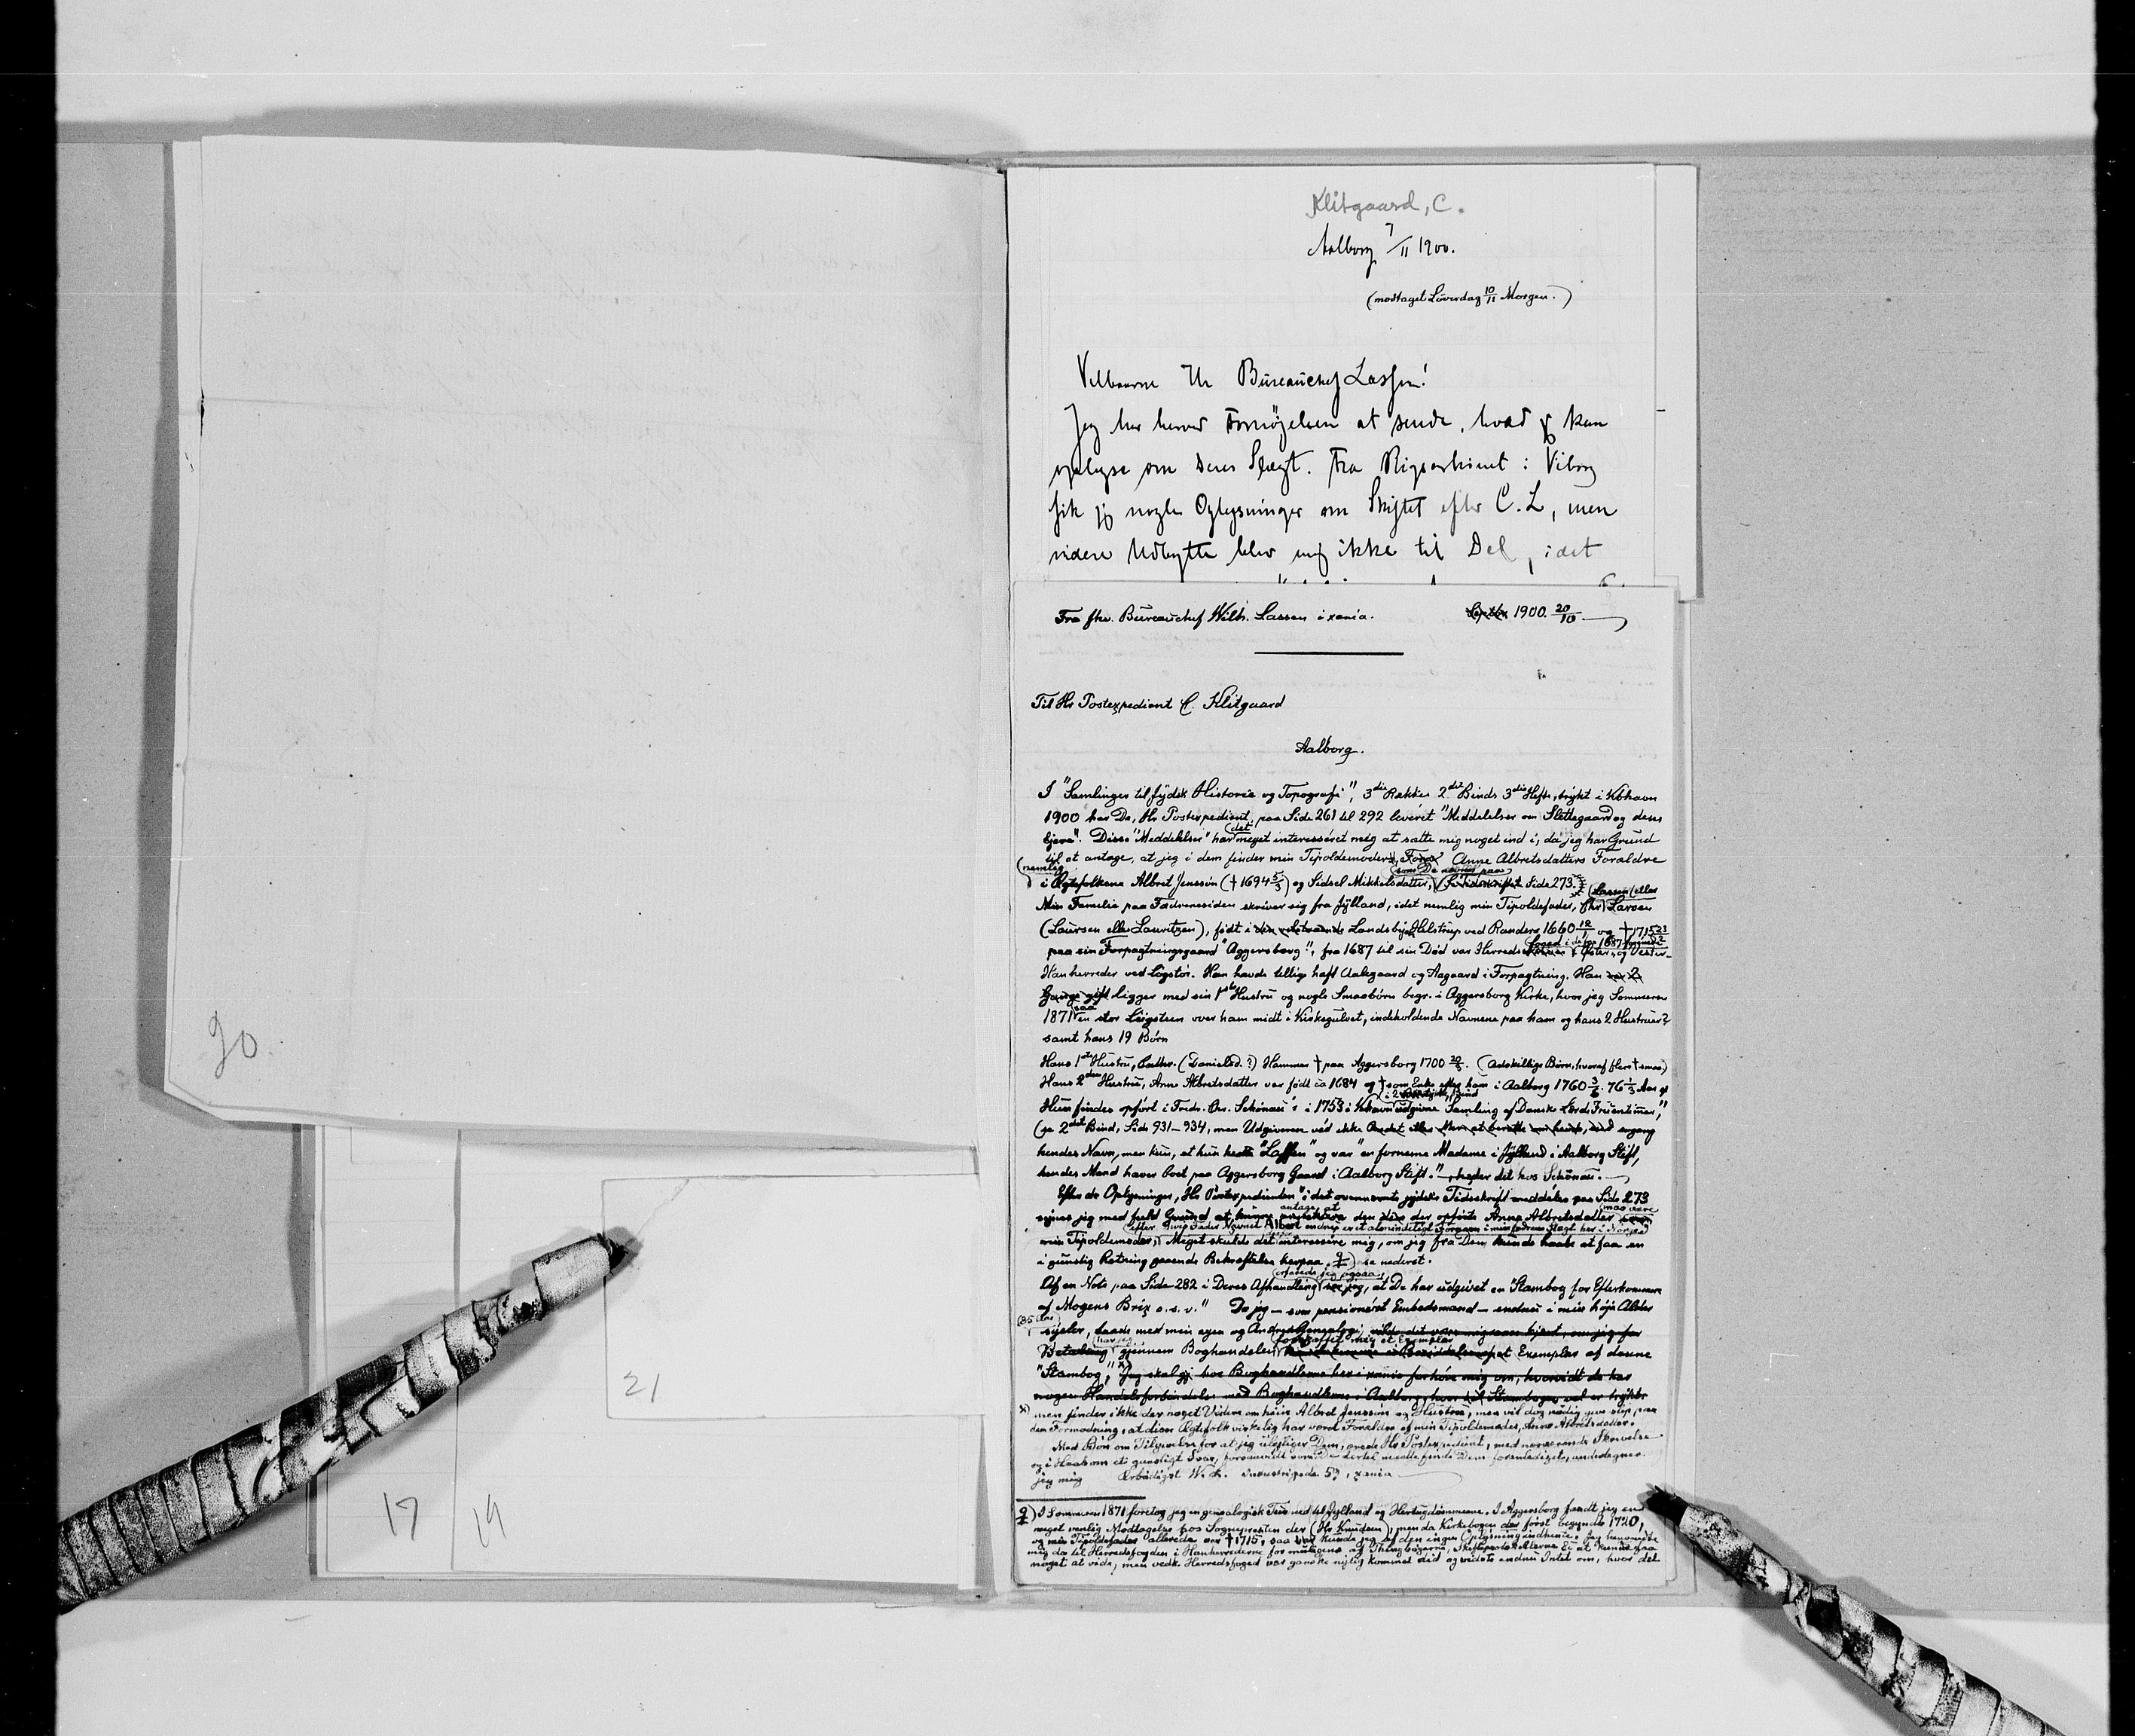 Klitgaard, C.
Aalborg 7/11 1900.
(modtaget Löverdag 10/11 Morgen.)
Velbaarne Hr Bureauchef Lassen!
Jeg har herved Fornöjelsen at sende, hvad jeg kan
oplyse om Deres Slægt. Fra Rigsarkivet i Viborg
fik jeg nogle Oplysninger om Skiftet efter C. L, men
videre Udbytte blev mig ikke til Del, idet
Fra fhv. Bureauchef Wilh. Lassen i xania. 1900. 20/10
Til Hr Postexpedient C. Klitgaard
Aalborg.
I "Samlinger til jydsk Historie og Topografi", 3die Rækkes 2det Binds 3die Hefte, trykt i Kbhavn
1900 har De, Hr Postexpedient, paa Side 261 til 292 leveret "Meddelelser om Slettegaard og dens
Ejere". Disse "Meddelelser" har det meget interesseret mig at sætte mig noget ind i, da jeg har Grund
til at antage, at jeg i dem finder min Tipoldemoders, Anne Albretsdatters Forældre
(nemlig
i Ægtefolkene Albret Jenssøn († 1694 5/3) og Sidsel Mikkelsdatter, Side 273.
Min Familie paa Fædrenesiden skriver sig fra Jylland, idet nemlig min Tipoldefader, Chr. Larsen
(Laursen eller Lauritzen), født i Landsbyen Helstrup ved Randers 1660 og † 1715
paa sin Forpagtningsgaard "Aggersborg", fra 1687 til sin Død var Herreds
Hanherreder ved Løgstør. Han havde tillige haft Aalegaard og Aagaard i Forpagtning. Han
ligger med sin 1ste Hustru og nogle Smaabørn begr. i Aggersborg Kirke, hvor jeg Sommeren
1871 saa en stor Ligsteen over ham midt i Kirkegulvet, indeholdende Navnene paa ham og hans 2 Hustruer
samt hans 19 Børn
Hans 1ste Hustru, Cathr. (Danielsd.?) Hammer † paa Aggersborg 1700 (Adskillige Børn, hvoraf flere † smaa.)
Hans 2den Hustru, Anne Albretsdatter var født ca 1684 og † som Enke efter ham i Aalborg 1760 76 1/3 Aar gl
Hun findes opført i Fredr. Chr. Schönau's i 1753 i Kbhavn udgivne Samling af Danske lærde Fruentimer,"
(se 2det Bind, Side 931–934, men Udgiveren véd ikke engang
hendes Navn, men kun, at hun hedte "Lassen" og var "en fornemme Madame i Jylland i Aalborg Stift,
hendes Mand haver boet paa Aggersborg Gaard i Aalborg Stift." — heder det hos Schönau. —
Efter de Oplysninger, Hr Postexpedienten i det ovennævnte jydske Tidsskrift meddeles paa Side 273
synes jeg med fuld Grund at kunne antage, at den der opførte Anne Albretsdatter maa være
min Tipoldemoder, Meget skulde det interessere mig, om jeg fra Dem kunde haabe at faa en
i gunstig Retning gaaende Bekræftelse herpaa. se nederst.
Af en Note paa Side 282 i Deres Afhandling erfarede jeg ogsaa, at De har udgivet en "Stambog for Efterkommere
af Mogens Brix o.s.v." Da jeg — som pensioneret Embedsmand — endnu i min høje Alder
(85 Aar)
sysler, baade med min egen og Andres Genealogi,
har jeg gjennem Boghandelen forskaffet mig et Exemplar af denne
"Stambog,"
men finder ikke der noget Viden om hiin Albret Jenssøn og Hustru, men vil dog nødig give slip paa
den Formodning, at disse Ægtefolk virkelig har været Forældre af min Tipoldemoder, Anne Albretsdatter.
Med Bøn om Tilgivelse for at jeg uleiliger Dem, ærede Hr Postexpedient, med nærværende Skrivelse
og i Haab om et gunstigt Svar, forsaavidt
jeg mig Ærbødigst W. L. Industrigade 59, xania
I Sommeren 1871 foretog jeg en genealogisk Tour ned til Jylland og Hertugdømmene. I Aggersborg fandt jeg en
meget venlig Modtagelse hos Sognepræsten der (Hr Knudsen), men da Kirkebogen der først begyndte 1720,
og min Tipoldefader allerede var † 1715, saa kunde jeg af den ingen Oplysning indhente. Jeg henvendte
mig da til Herredsfogden i Hanherrederne for muligens af Thingbøgerne, Skifteprotokollerne &c at kunne faa
noget at vide, men vedk. Herredsfoged var ganske nylig kommet did og vidste endnu Intet om, hvor det
20
21
17
19